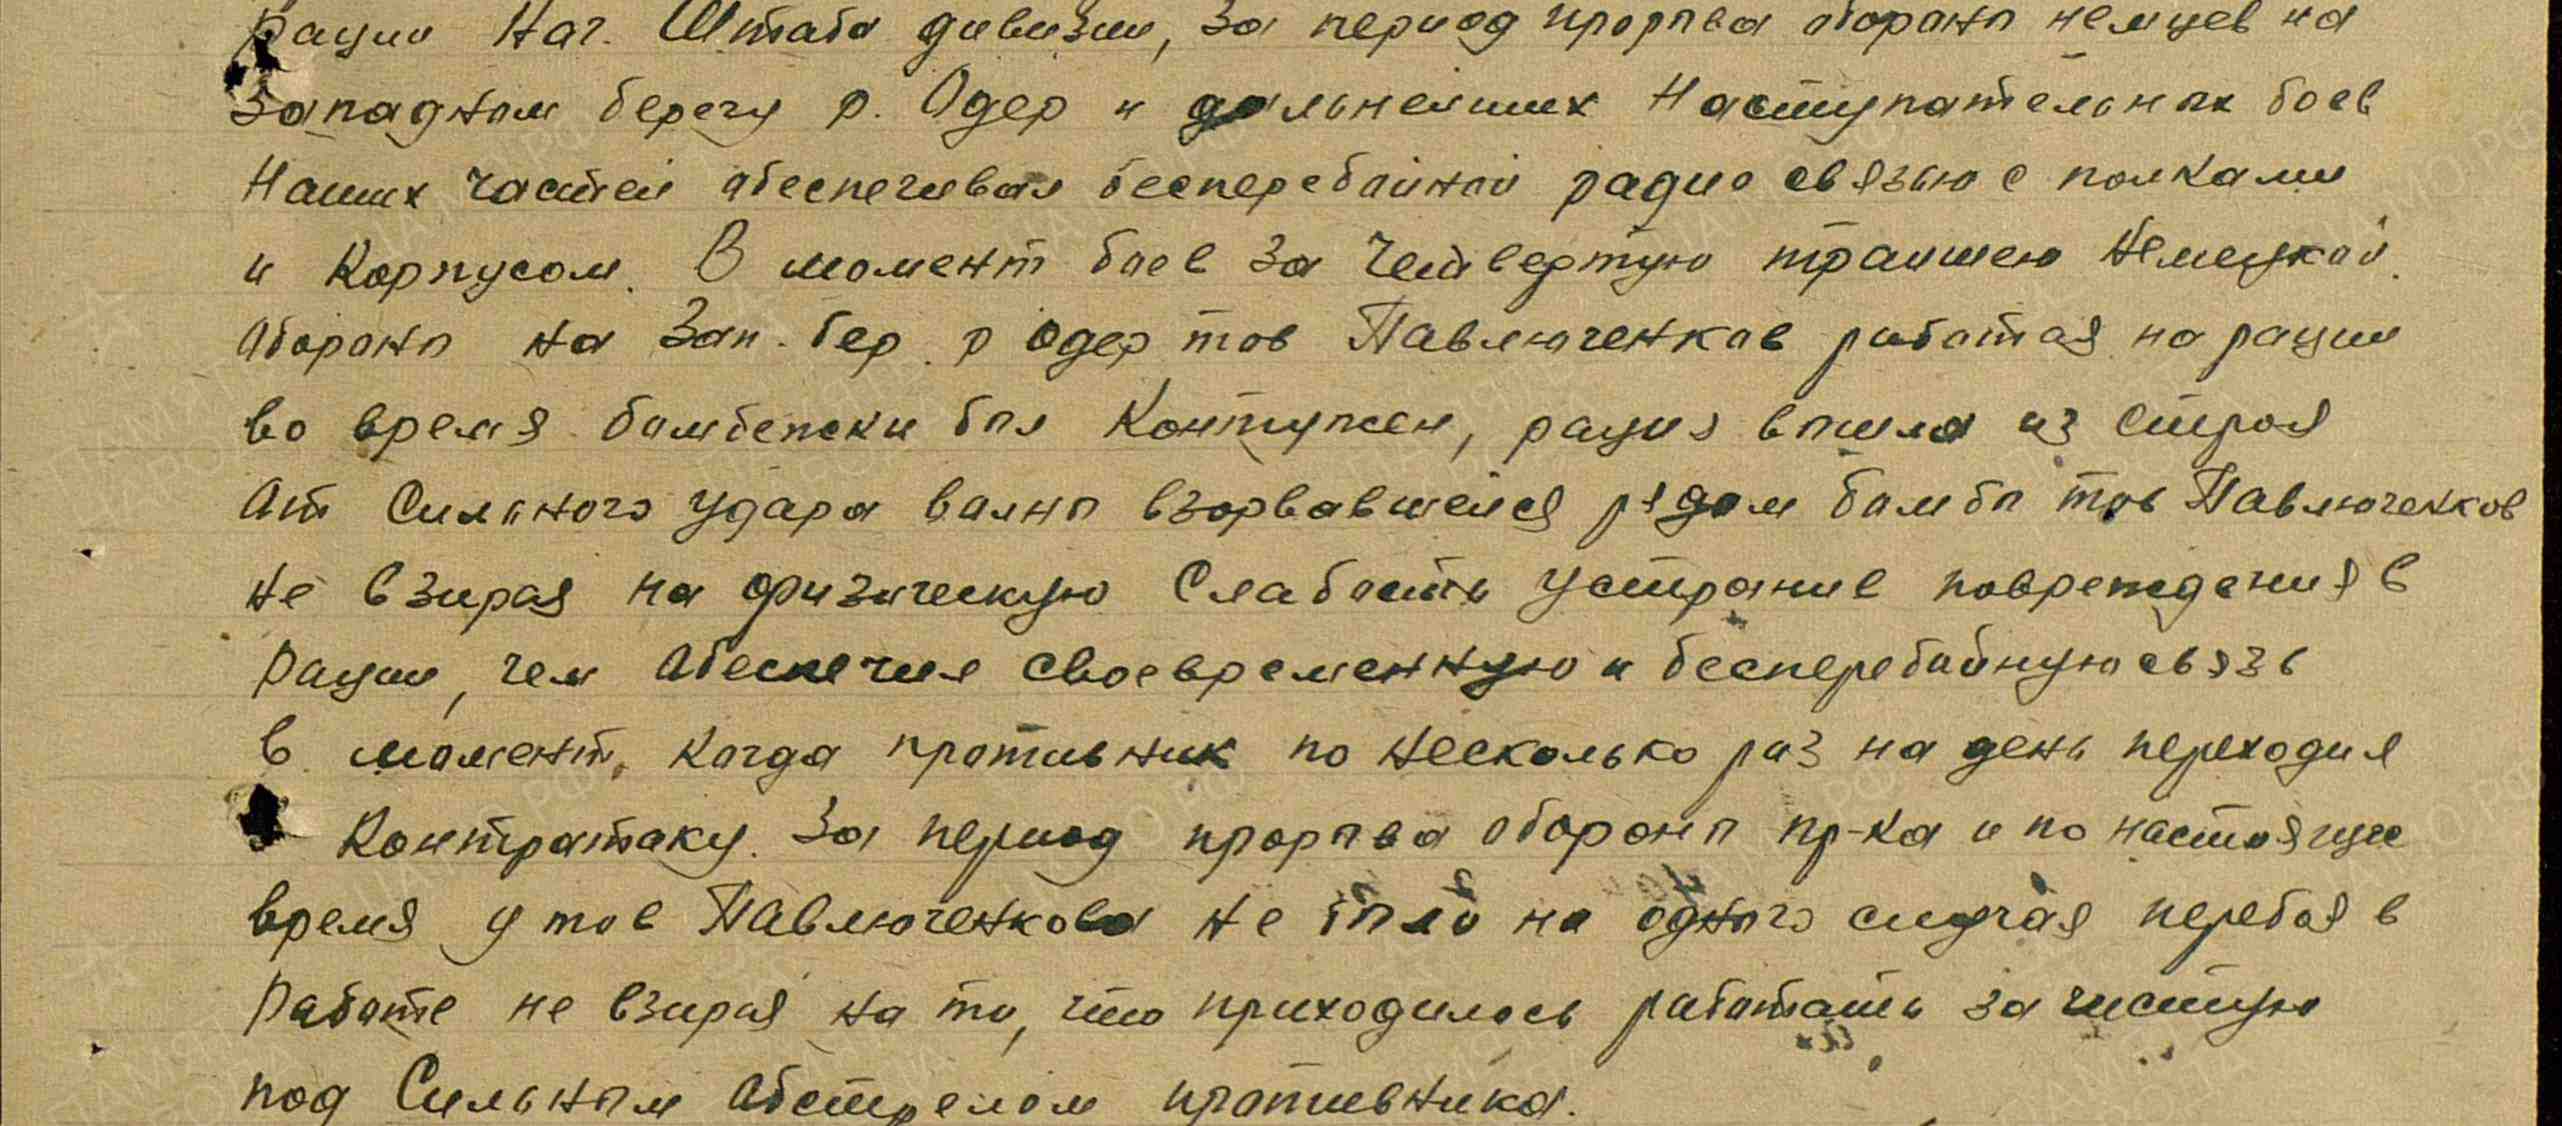 рации Нач. Штаба дивизии, за период прорыва обороны немцев на
Западном берегу р. Одер и дальнейших Наступательных боев
Наших частей обеспечивал бесперебойной радио связью с полками
и Корпусом. В момент боев за Четвертую траншею Немецкой
Обороны на Зап. бер. р Одер тов Павлюченков работая на рации
во время бомбежки был Контужен, рация вышла из строя
От Сильного удара волны взорвавшейся рядом бомбы тов Павлюченков
не взирая на физическую Слабость устранил повреждения в
рации, чем Обеспечил своевременную и бесперебойную связь
в момент, Когда противник по несколько раз на день переходил
в Контратаку. За период прорыва обороны пр-ка и по настоящее
время у тов Павлюченкова не было не одного случая перебоя в
Работе не взирая на то, что приходилось работать зачистую
под Сильным Обстрелом противника.